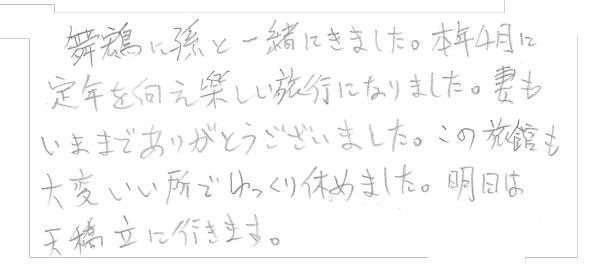 舞鶴に孫と一緒にきました。本年4月に
定年を向え楽しい旅行になりました。妻も
いままでありがとうございました。この旅館も
大変いい所でゆっくり休めました。明日は
天橋立に行きます。